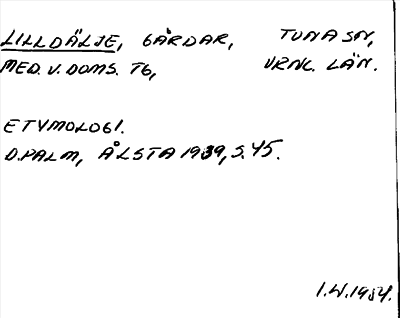 LILLDÄLJE, GÅRDAR, TUNA SN,
MED. V. DOMS. TG, VRNL. LÄN.
ETYMOLOGI.
D. PALM, ÅLSTA 1939, S. 45.
I.W. 1954.